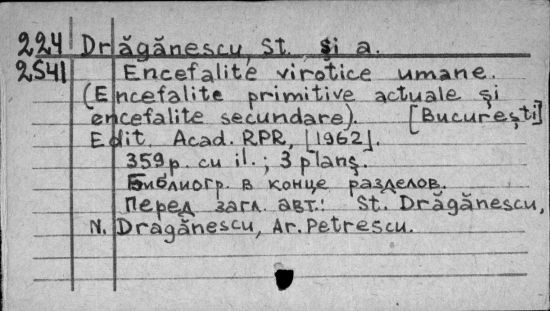 224 Drăgănescu, St. și a.
2541 Encefalite virotice umane.
(Encefalite primitive actuale și
encefalite secundare). [București]
Edit. Acad. RPR, [1962].
359p. cu il.; 3 planș.
Библиогр. в конце разделов.
Перед загл. авт.: St. Drăgănescu,
N. Dragănescu, Ar. Petrescu.